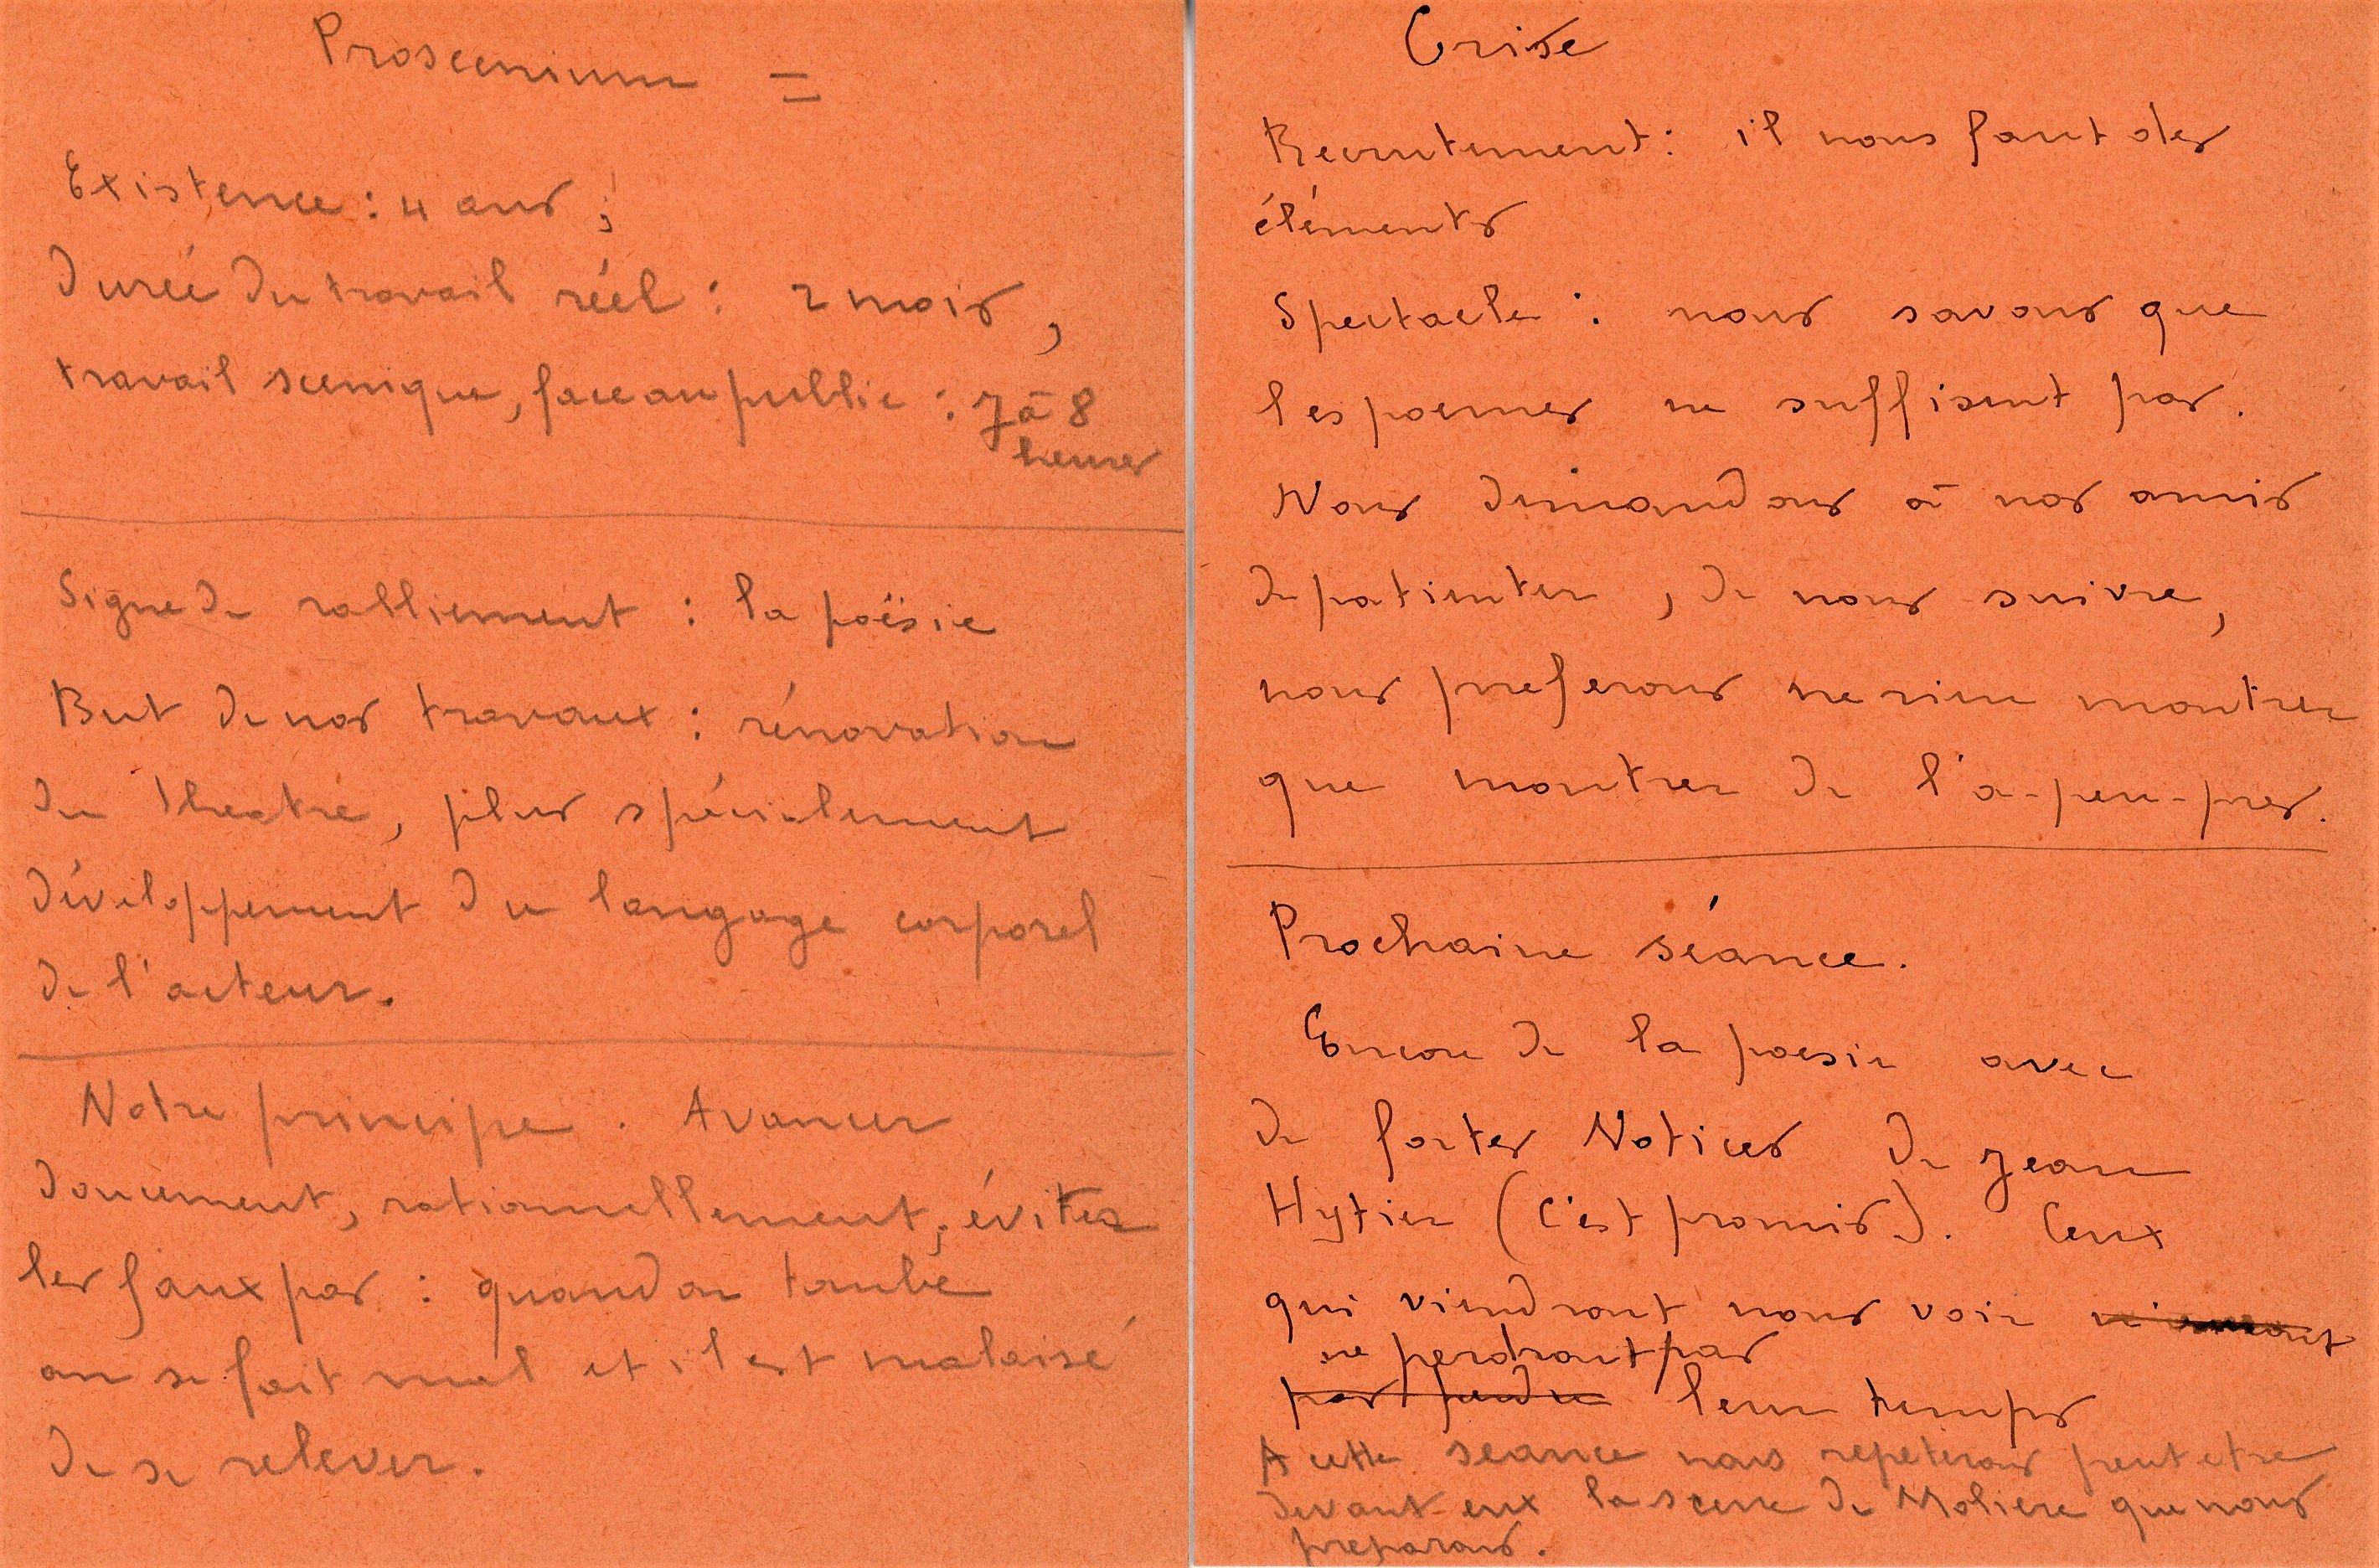 Proscenium =
Existence : 4 ans ;
Durée du travail réel : 2 mois,
travail scenique, face au public : 7 à 8
heures
Signe de ralliement : la poësie
But de nos travaux : rénovation
du theatre, plus spécialement
développement du langage corporel
de l'acteur.
Notre principe. Avancer
doucement, rationnellement, éviter
les faux pas : quand on tombe
on se fait mal et il est malaisé
de se relever.
Crise
Recrutement : il nous faut des
éléments
Spectacle : nous savons que
les poemes ne suffisent pas.
Nous demandons à nos amis
de patienter, de nous suivre,
nous preferons ne rien montrer
que montrer de l'à-peu-pres.
Prochaine séance.
Encore de la poesie avec
de fortes Notices de Jean
Hytier (c'est promis). Ceux
qui viendront nous voir
ne perdront pas
pas perdu leur temps
A cette seance nous repeterons peut etre
devant eux la scene de Moliere que nous
preparons.